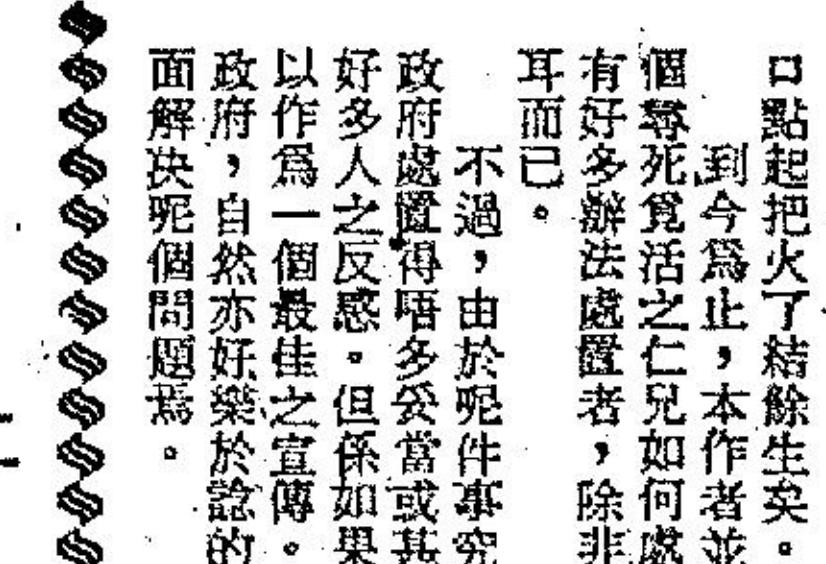 口點起把火了結餘生矣。
到今爲止，本作者並
個尋死覓活之仁兄如何處
有好多辦法處置者，除非
耳而已。
不過，由於呢件事究
政府處置得唔多妥當或甚
好多人之反感。但係如果
以作爲一個最佳之宣傳。
政府，自然亦好樂於諗的
面解決呢個問題焉。